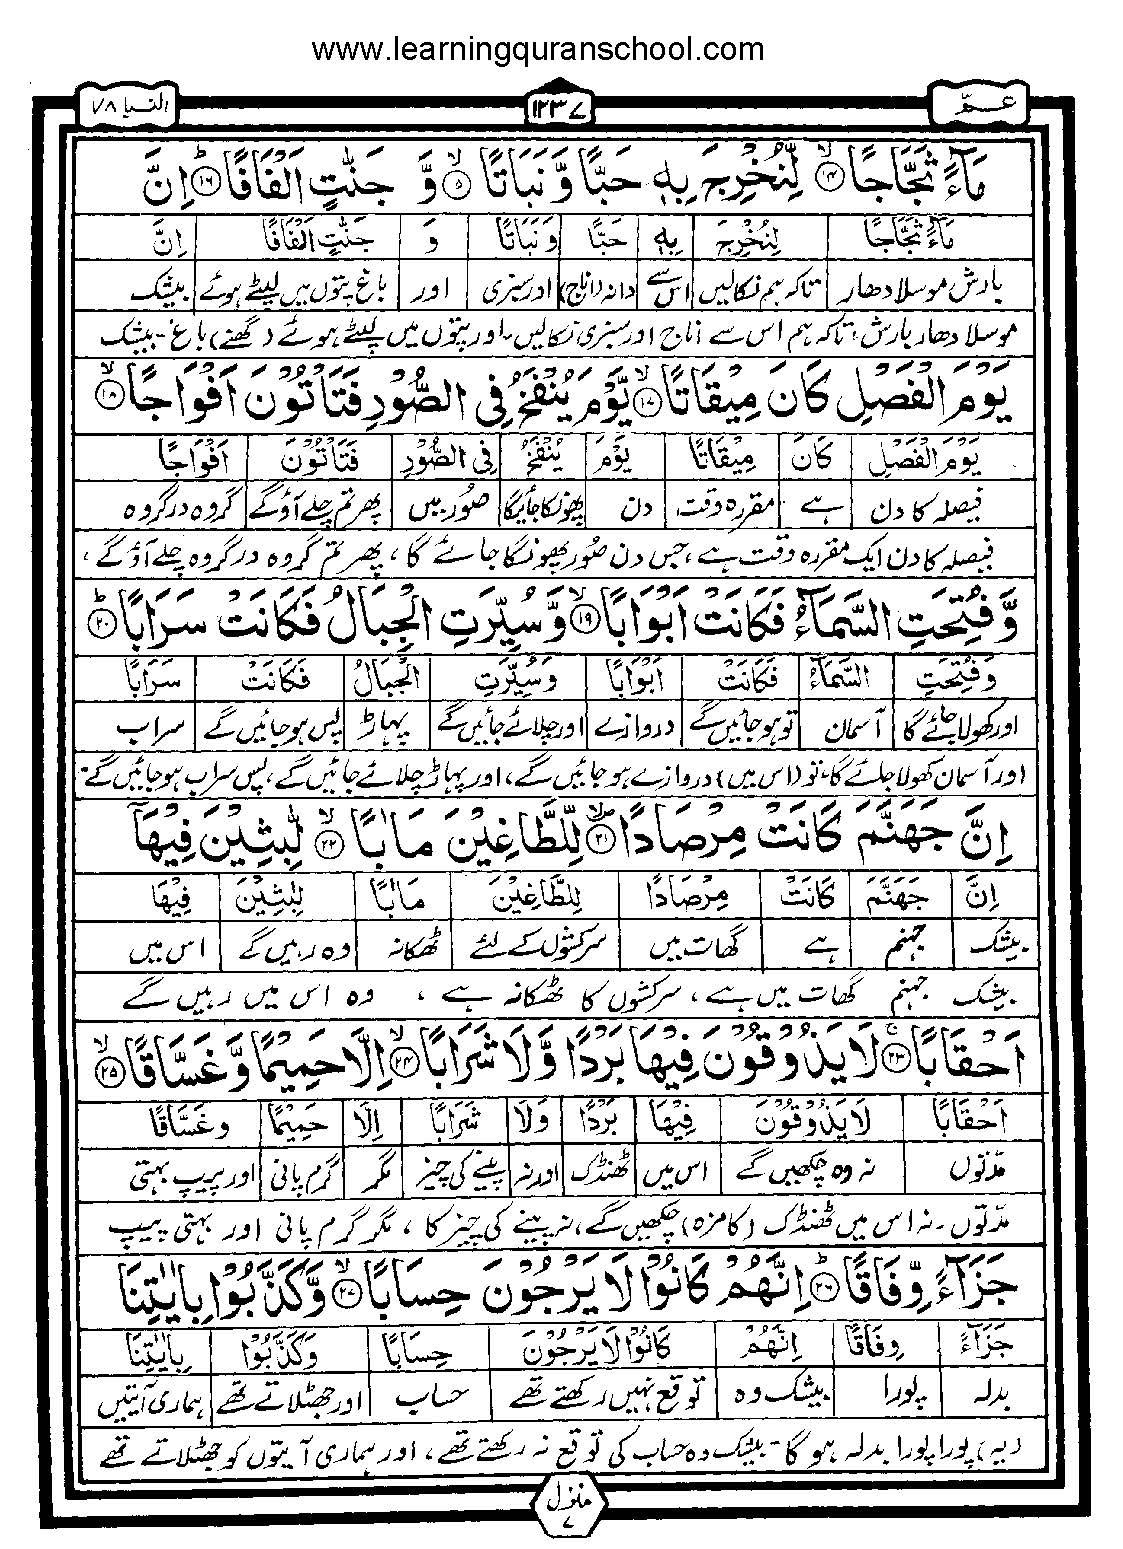 www.learningquranschool.com
عـمّ ۱۲۳۷ النبا ۷۸
مَآءً ثَجَّاجًا ۙ﴿۱۴﴾ لِّنُخْرِجَ بِهٖ حَبًّا وَّ نَبَاتًا ۙ﴿۱۵﴾ وَّ جَنّٰتٍ اَلْفَافًا ؕ﴿۱۶﴾ اِنَّ
مَآءً ثَجَّاجًا لِنُخْرِجَ بِهٖ حَبًّا وَنَبَاتًا وَ جَنّٰتٍ اَلْفَافًا اِنَّ
بارش موسلادھار تاکہ ہم نکالیں اس سے دانہ (اناج) اور سبزی اور باغ پتوں میں لپٹے ہوئے بیشک
موسلا دھار بارش، تاکہ ہم اس سے اناج اور سبزی نکالیں۔ اور پتوں میں لپٹے ہوئے (گھنے) باغ۔ بیشک
يَوْمَ الْفَصْلِ كَانَ مِيْقَاتًا ۙ﴿۱۷﴾ يَّوْمَ يُنْفَخُ فِى الصُّوْرِ فَتَاْتُوْنَ اَفْوَاجًا ۙ﴿۱۸﴾
يَوْمَ الْفَصْلِ كَانَ مِيْقَاتًا يَوْمَ يُنْفَخُ فِى الصُّوْرِ فَتَاْتُوْنَ اَفْوَاجًا
فیصلہ کا دن ہے مقررہ وقت دن پھونکا جائیگا صُور میں پھر تم چلے آؤ گے گروہ در گروہ
فیصلہ کا دن ایک مقررہ وقت ہے، جس دن صُور پھونکا جائے گا، پھر تم گروہ در گروہ چلے آؤ گے،
وَّ فُتِحَتِ السَّمَآءُ فَكَانَتْ اَبْوَابًا ۙ﴿۱۹﴾ وَّ سُيِّرَتِ الْجِبَالُ فَكَانَتْ سَرَابًا ؕ﴿۲۰﴾
وَفُتِحَتِ السَّمَآءُ فَكَانَتْ اَبْوَابًا وَسُيِّرَتِ الْجِبَالُ فَكَانَتْ سَرَابًا
اور کھولا جائے گا آسمان تو ہو جائیں گے دروازے اور چلائے جائیں گے پہاڑ پس ہو جائیں گے سراب
اور آسمان کھولا جائے گا۔ تو (اس میں) دروازے ہو جائیں گے، اور پہاڑ چلائے جائیں گے، پس سراب ہو جائیں گے۔
اِنَّ جَهَنَّمَ كَانَتْ مِرْصَادًا ۙ﴿۲۱﴾ لِّلطَّاغِيْنَ مَاٰبًا ۙ﴿۲۲﴾ لّٰبِثِيْنَ فِيْهَآ
اِنَّ جَهَنَّمَ كَانَتْ مِرْصَادًا لِلطَّاغِيْنَ مَاٰبًا لٰبِثِيْنَ فِيْهَا
بیشک جہنم ہے گھات میں سرکشوں کے لئے ٹھکانہ وہ رہیں گے اس میں
بیشک جہنم گھات میں ہے، سرکشوں کا ٹھکانہ ہے، وہ اس میں رہیں گے
اَحْقَابًا ۚ﴿۲۳﴾ لَا يَذُوْقُوْنَ فِيْهَا بَرْدًا وَّ لَا شَرَابًا ۙ﴿۲۴﴾ اِلَّا حَمِيْمًا وَّ غَسَّاقًا ۙ﴿۲۵﴾
اَحْقَابًا لَا يَذُوْقُوْنَ فِيْهَا بَرْدًا وَلَا شَرَابًا اِلَّا حَمِيْمًا وَغَسَّاقًا
مدّتوں نہ وہ چکھیں گے اس میں ٹھنڈک اور نہ پینے کی چیز مگر گرم پانی اور پیپ بہتی
مدّتوں۔ نہ اس میں ٹھنڈک (کا مزہ) چکھیں گے، نہ پینے کی چیز کا، مگر گرم پانی اور بہتی پیپ
جَزَآءً وِّفَاقًا ؕ﴿۲۶﴾ اِنَّهُمْ كَانُوْا لَا يَرْجُوْنَ حِسَابًا ۙ﴿۲۷﴾ وَّ كَذَّبُوْا بِاٰيٰتِنَا
جَزَآءً وِفَاقًا اِنَّهُمْ كَانُوْا لَا يَرْجُوْنَ حِسَابًا وَكَذَّبُوْا بِاٰيٰتِنَا
بدلہ پورا بیشک وہ توقع نہیں رکھتے تھے حساب اور جھٹلاتے تھے ہماری آیتیں
(یہ) پورا پورا بدلہ ہو گا۔ بیشک وہ حساب کی توقع نہ رکھتے تھے، اور ہماری آیتوں کو جھٹلاتے تھے
منزل ۷